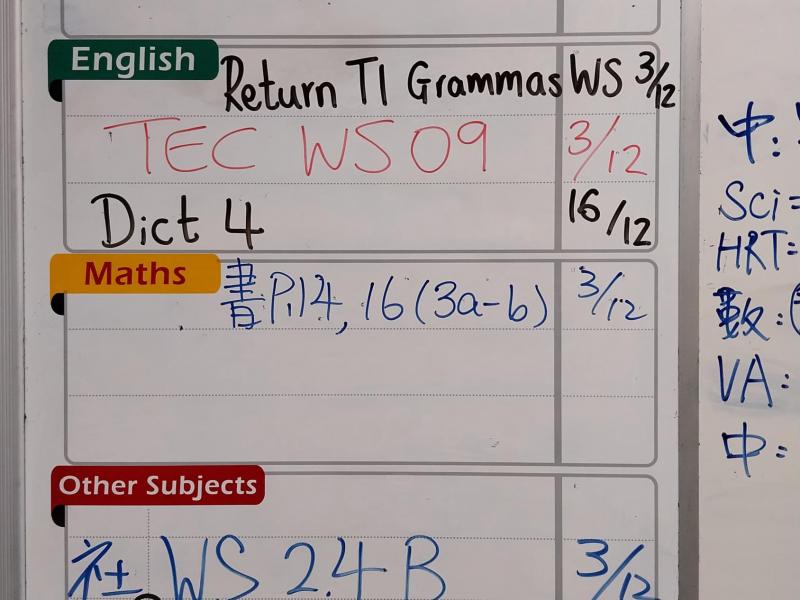 English
Return T1 Grammas WS 3/12
TEC WS 09 3/12
Dict 4 16/12
Maths
書P.14, 16(3a-b) 3/12
Other Subjects
社 WS 2.4 B 3/12
中:
Sci=
HRT=
數:
VA:
中=